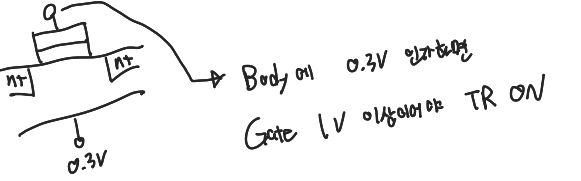 n+ n+
0.3V
Body에 0.3V 인가하면
Gate 1V 이상이어야 TR ON